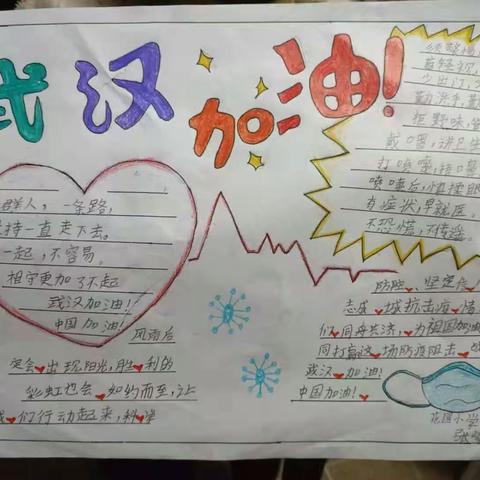 武汉加油!
群人,一条路,
持一直走下去。
一起,不容易。
相守更加了不起
武汉加油!
中国加油!
风雨后
定会出现阳光,胜利的
彩虹也会如约而至,让
我们行动起来,科学
少出门,少
勤洗手,勤
拒野味,管
戴口罩,讲卫生
打喷嚏,捂口鼻
喷嚏后,慎揉眼
有症状,早就医。
不恐慌,不传谣。
防控,坚定信心
志成城抗击疫情
们同舟共济,为祖国加油
同打赢这场防疫阻击战
武汉加油!
中国加油!
花园小学
张